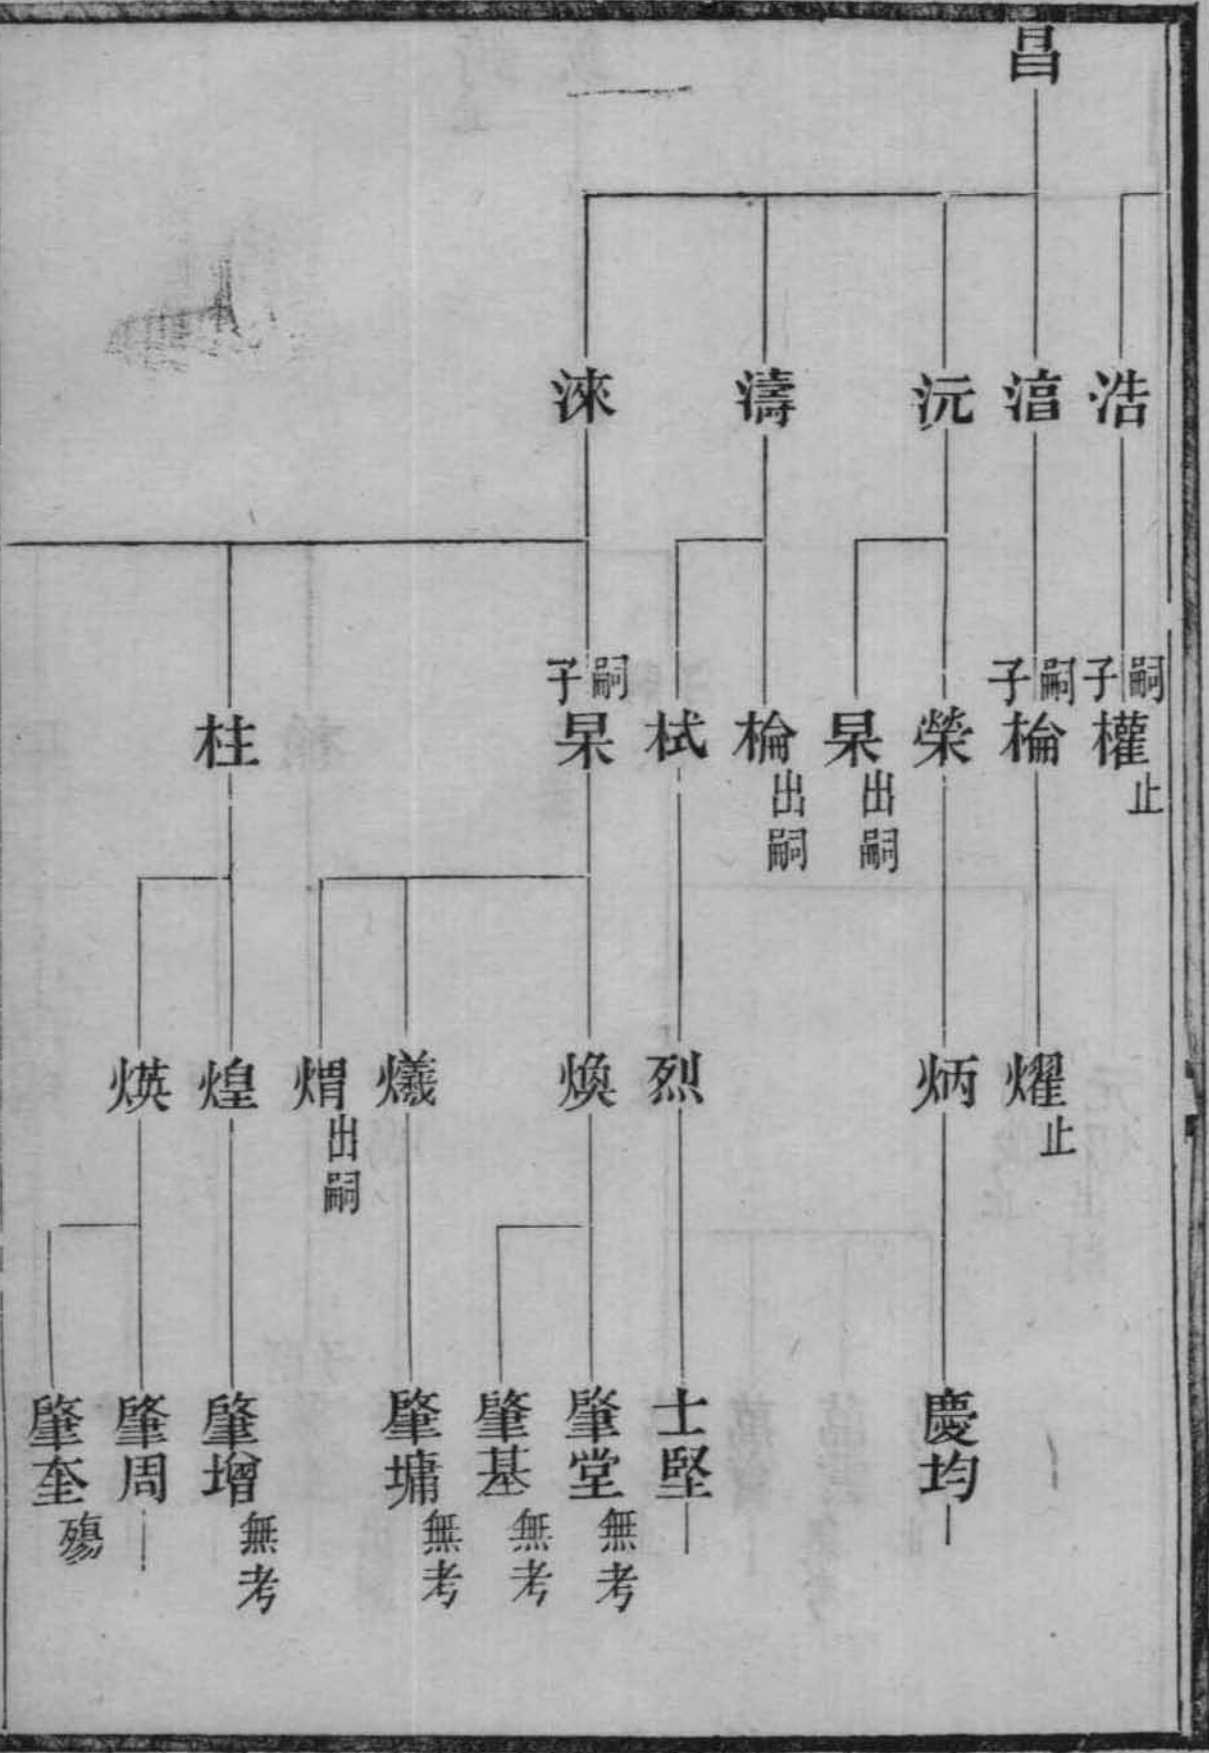 昌
浩
湻
沅
濤
淶
嗣子權止
嗣子棆
榮
杲出嗣
棆出嗣
栻
嗣子杲
柱
燿止
炳
烈
煥
爔
煟出嗣
煌
煐
慶均
士堅
肇堂無考
肇基無考
肇墉無考
肇增無考
肇周
肇奎殤